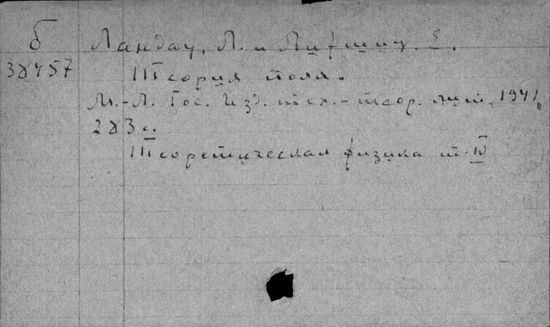 Б Ландау, Л. и Лифшиц, Е.
38457 Теория поля.
М.-Л. Гос. Изд. тех.-теор. лит., 1941,
283 с.
Теоретическая физика т. IV